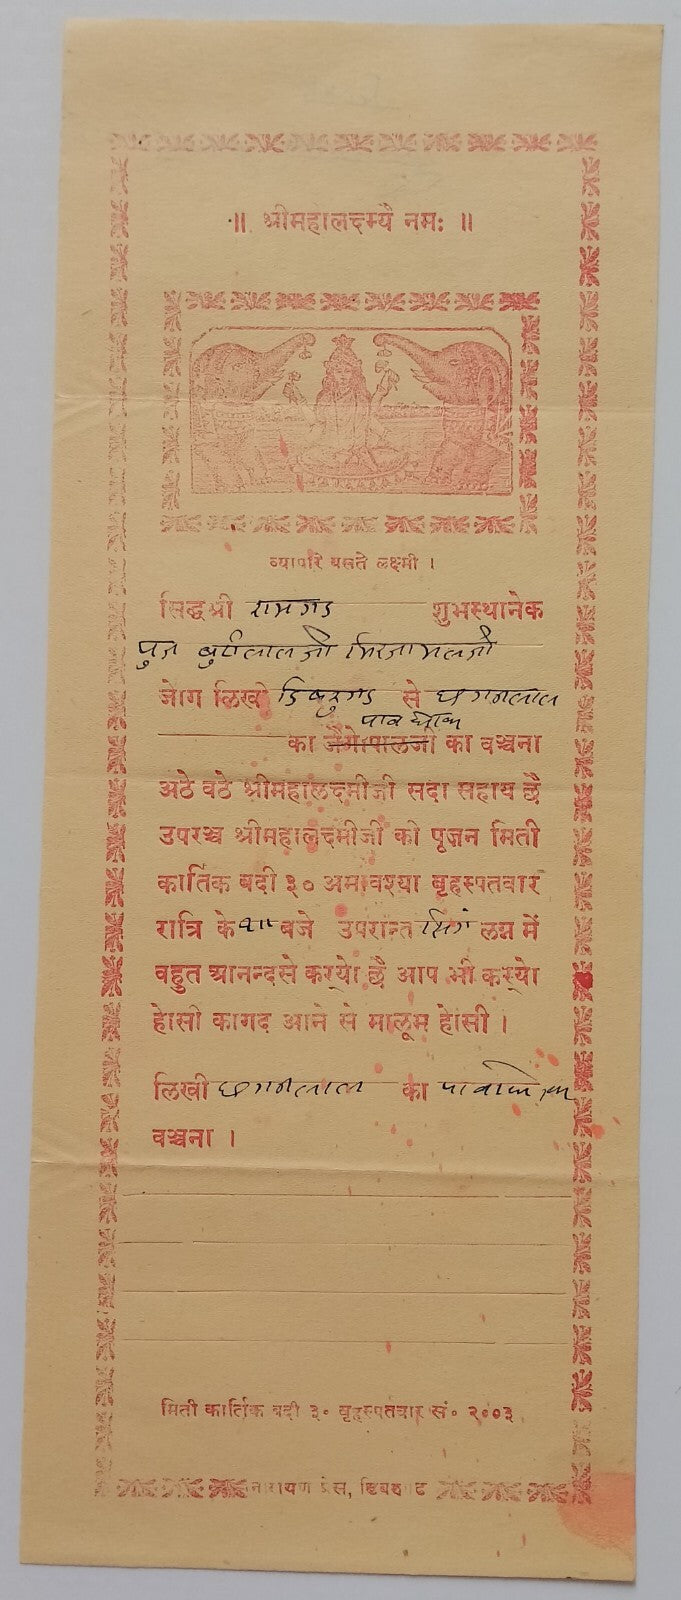 ॥ श्रीमहालक्ष्म्यै नमः ॥
व्यापारे बसते लक्ष्मी ।
सिद्धश्री रामगड शुभस्थानेक
पुज
जोग लिखी डिब्रुगड से छगनलाल
का जैगोपालजी का बञ्चना
अठे वठे श्रीमहालक्ष्मीजी सदा सहाय छै
उपरञ्च श्रीमहालक्ष्मीजी की पूजन मिती
कार्तिक बदी ३० अमावश्या बृहस्पतवार
रात्रि के बजे उपरान्त लग्न में
बहुत आनन्दसे करयो छै आप भी करयो
होसी कागद आने से मालूम होसी ।
लिखी छगनलाल का
बञ्चना ।
मिती कार्तिक बदी ३० बृहस्पतवार सं० २००३
नारायण प्रेस, डिबरूगढ